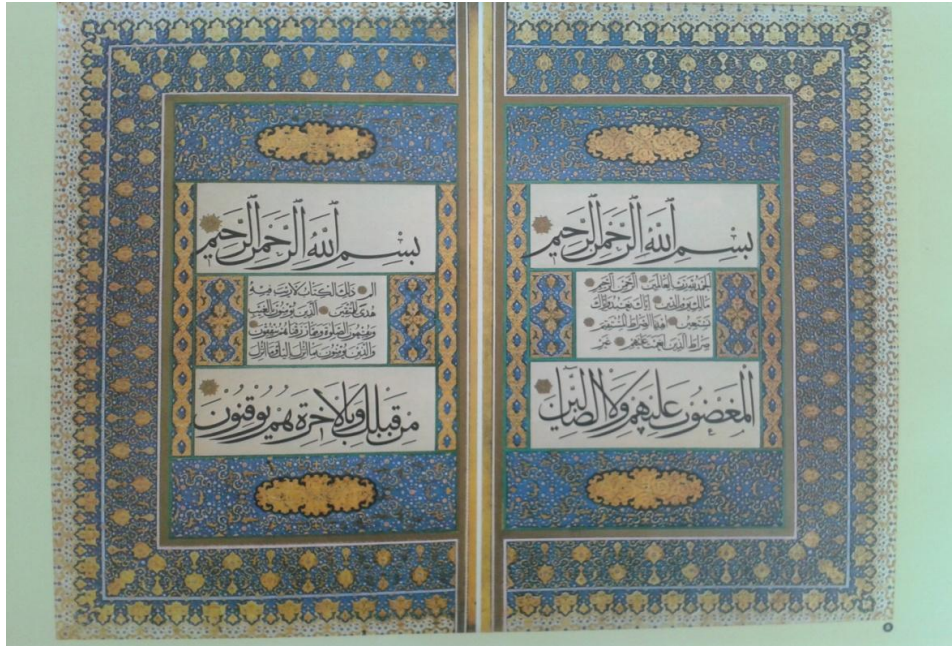 بِسْمِ ٱللَّهِ ٱلرَّحْمَٰنِ ٱلرَّحِيمِ
الحمد لله رب العالمين الرحمن الرحيم
مالك يوم الدين إياك نعبد وإياك
نستعين اهدنا الصراط المستقيم
صراط الذين أنعمت عليهم غير
المغضوب عليهم ولا الضالين
بِسْمِ ٱللَّهِ ٱلرَّحْمَٰنِ ٱلرَّحِيمِ
الم ذلك الكتاب لا ريب فيه
هدى للمتقين الذين يؤمنون بالغيب
ويقيمون الصلوة ومما رزقناهم ينفقون
والذين يؤمنون بما أنزل إليك وما أنزل
من قبلك وبالآخرة هم يوقنون